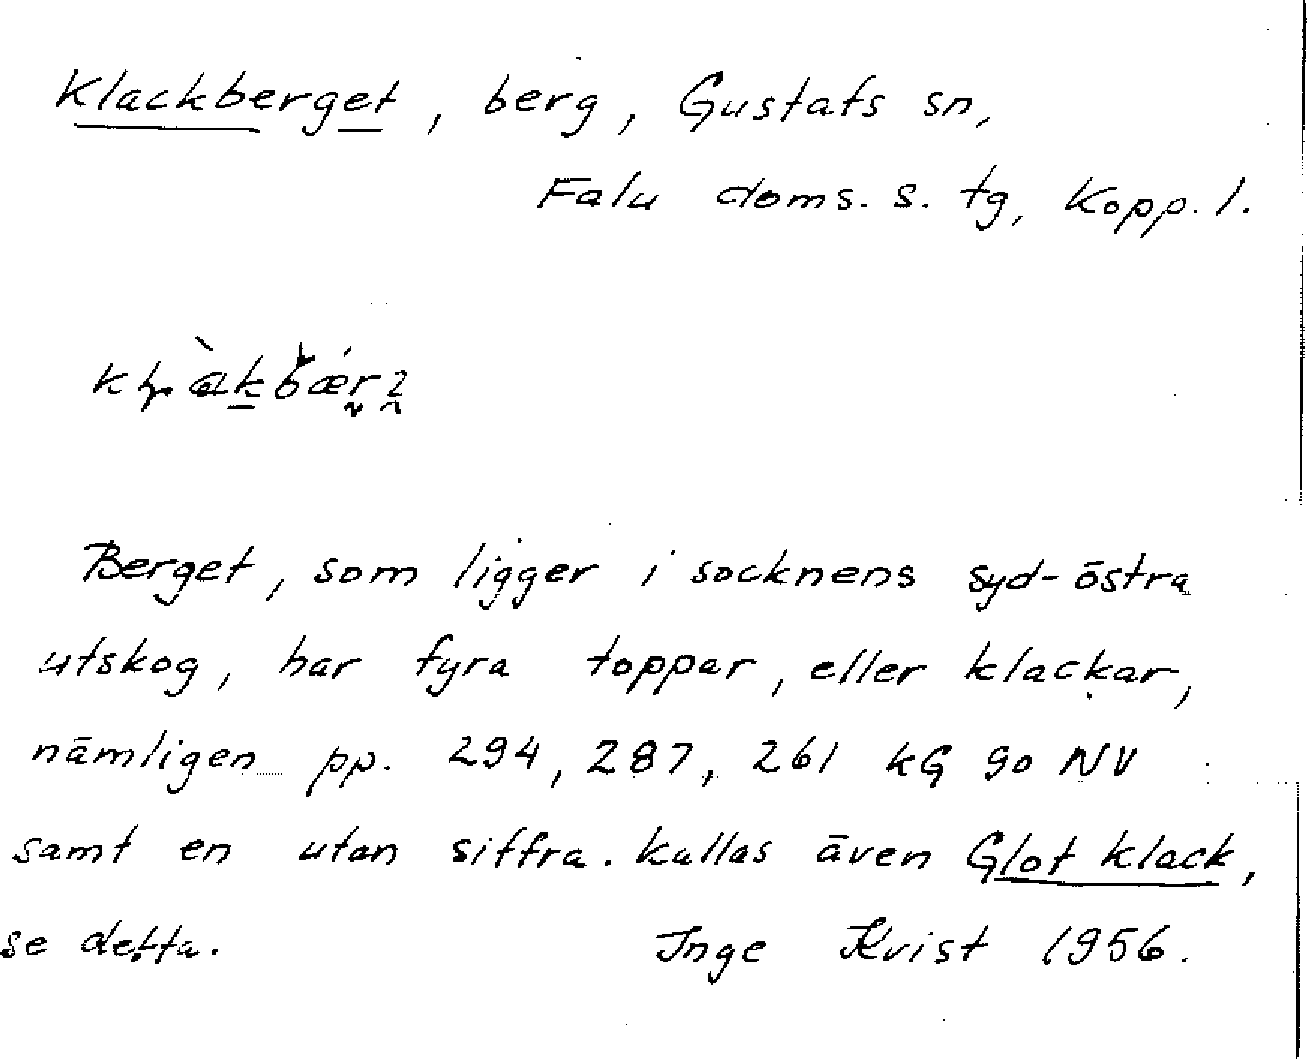 Klackberget, berg, Gustafs sn,
Falu doms. s. tg, Kopp. l.
Berget, som ligger i socknens syd-östra
utskog, har fyra toppar, eller klackar,
nämligen pp. 294, 287, 261 kG 90 NV
samt en utan siffra. kallas även Glot klack,
se detta. Inge Kvist 1956.